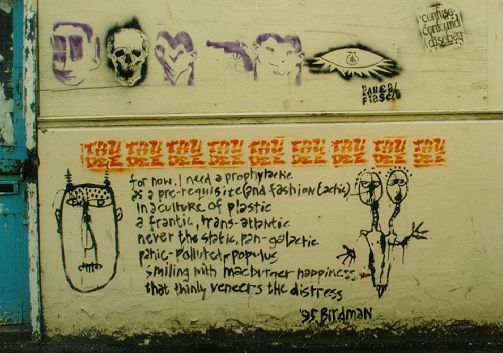 confuse
confound
disobey
TAU TAU TAU TAU TAU TAU TAU TAU TAU
DEE DEE DEE DEE DEE DEE DEE DEE DEE
for now, I need a prophylactic
as a pre-requisite (and fashion tactic)
in a culture of plastic
a frantic, trans-atlantic
never the static, pan-galactic
panic-polluted, populus
smiling with macburger happiness
that thinly veneers the distress
'95 BirdMAN